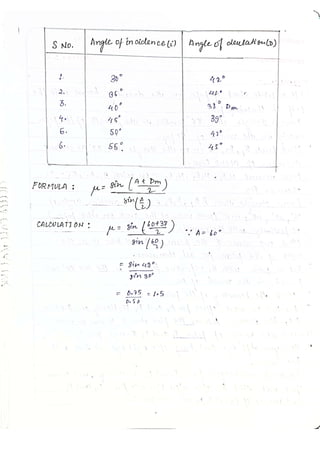 S No. Angle of incidence (i) Angle of deviation (D)
1. 30° 42°
2. 35°
3. 40° 38° Dm
4. 45° 39°
5. 50° 43°
6. 55° 45°
FORMULA : μ = sin (A + Dm / 2)
sin (A / 2)
CALCULATION : μ = sin (60+38 / 2) ∵ A = 60°
sin (60 / 2)
= sin 49°
sin 30°
= 0.75 = 1.5
0.50